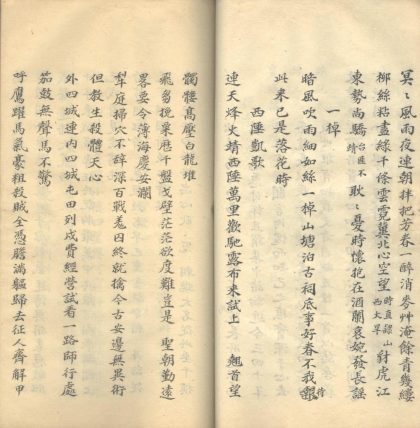 冥〻風雨夜連朝拌把芳春一醉消麥艸淹餘青幾縷
柳絲粘盡綠千條雲霓冀北心空望時直顕山西大旱對虎江
東勢尚驕台匪不靖耿〻憂時懷抱在酒闌哀婉發長謡
一棹
暗風吹雨細如絲一棹山塘泊古祠底事好春不我待
此来已是落花時
西陲凱歌
連天烽火靖西陲萬里歡馳露布来試上 翹首望
髑髏高壓白龍堆
飛芻挽粟歷千盤戈壁茫茫欲度難豈是 聖朝勤遠
畧要令薄海慶安瀾
犂庭掃穴不辭深百戰羗囚終就擒今古安邊無異術
但教生殺體天心
外四城連内四城屯田列戍費經營試看一路師行處
笳鼓無聲馬不驚
呼鷹躍馬氣豪粗殺賊全憑膽滿軀歸去征人齊解甲